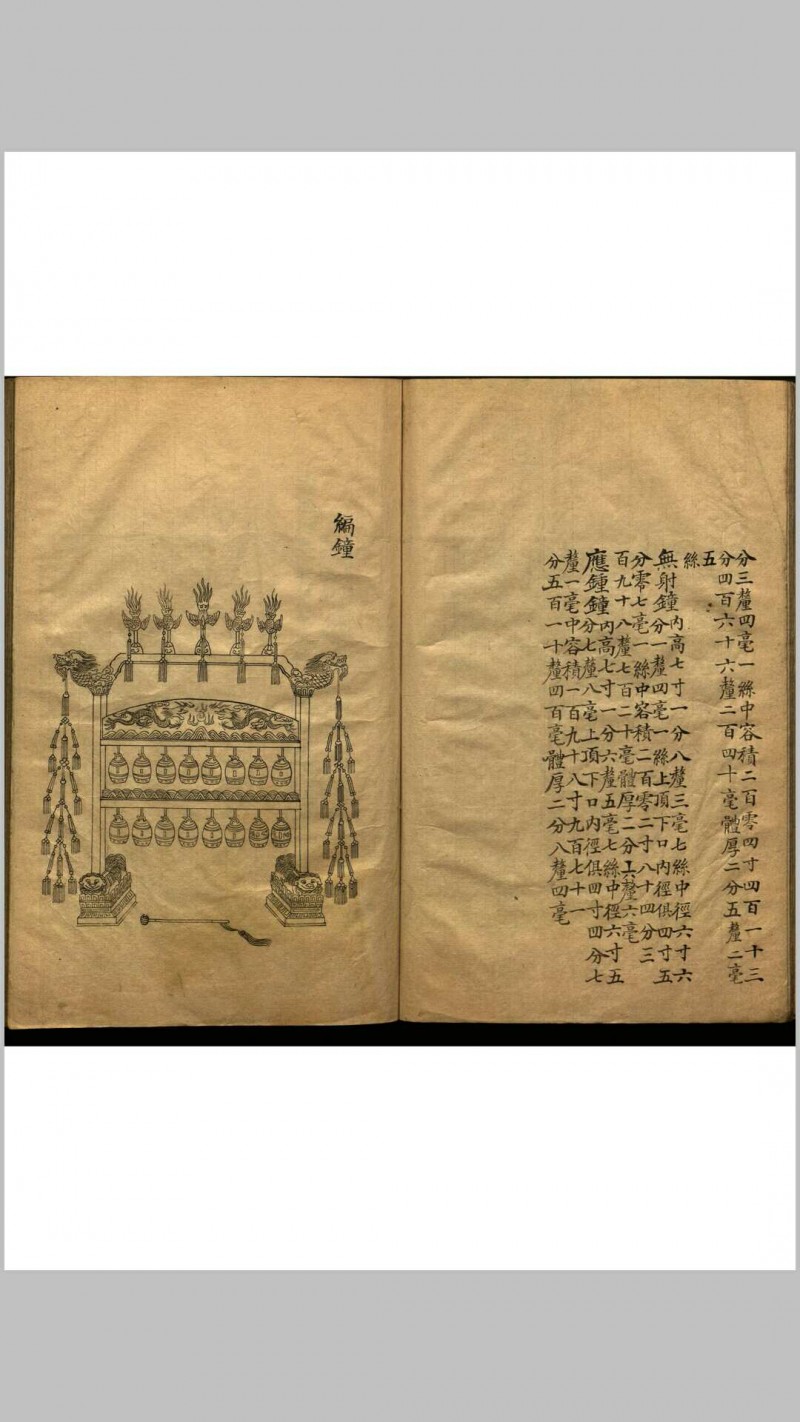 分三釐四毫一絲中容積二百零四寸四百一十三
分四百六十六釐二百四十毫體厚二分五釐二毫
五
絲
無射鐘
內高七寸一分八釐三毫七絲中徑六寸六
分一釐四毫一絲上頂下口內徑俱四寸五
分零七毫一絲中容積二百零二寸八十四分三
百九十八釐七百二十毫體厚二分六釐六毫
應鍾鐘
內高七寸一分六釐五毫七絲中徑六寸五
分七釐八毫上頂下口內徑俱四寸四分七
釐一毫中容積一百九十八寸九百七十一
分五百一十釐四百毫體厚二分八釐四毫
編鐘